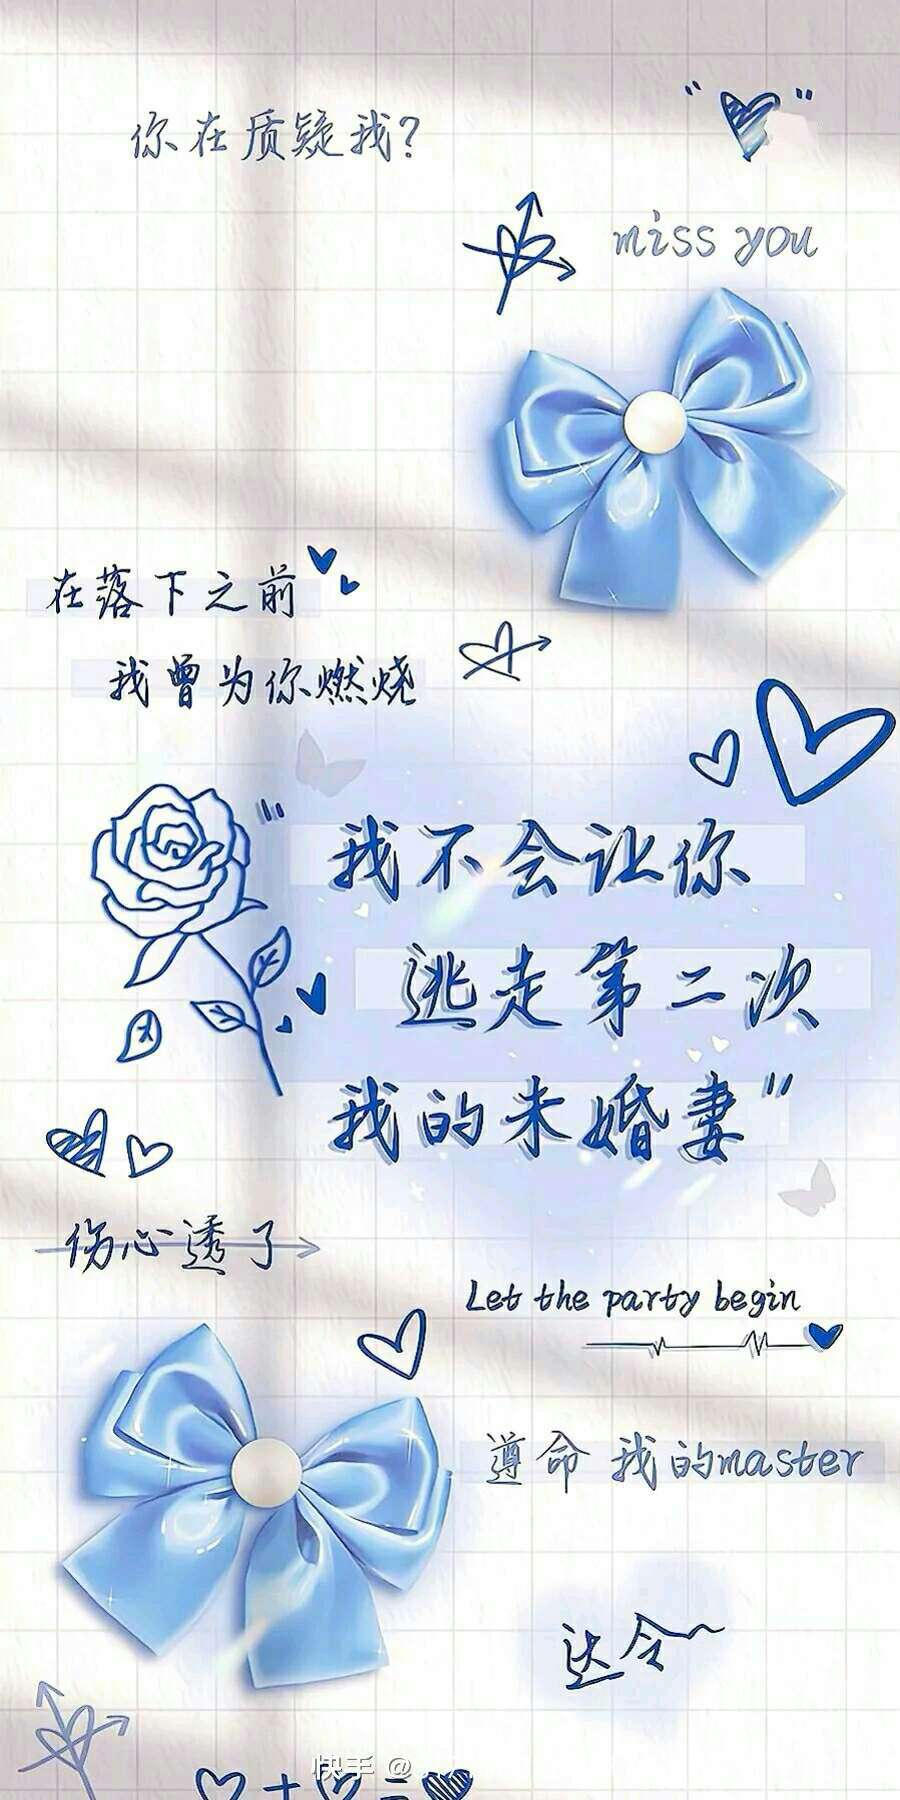 你在质疑我?
miss you
在落下之前
我曾为你燃烧
"我不会让你
逃走第二次
我的未婚妻"
伤心透了
Let the party begin
遵命 我的master
达令~
快手 @